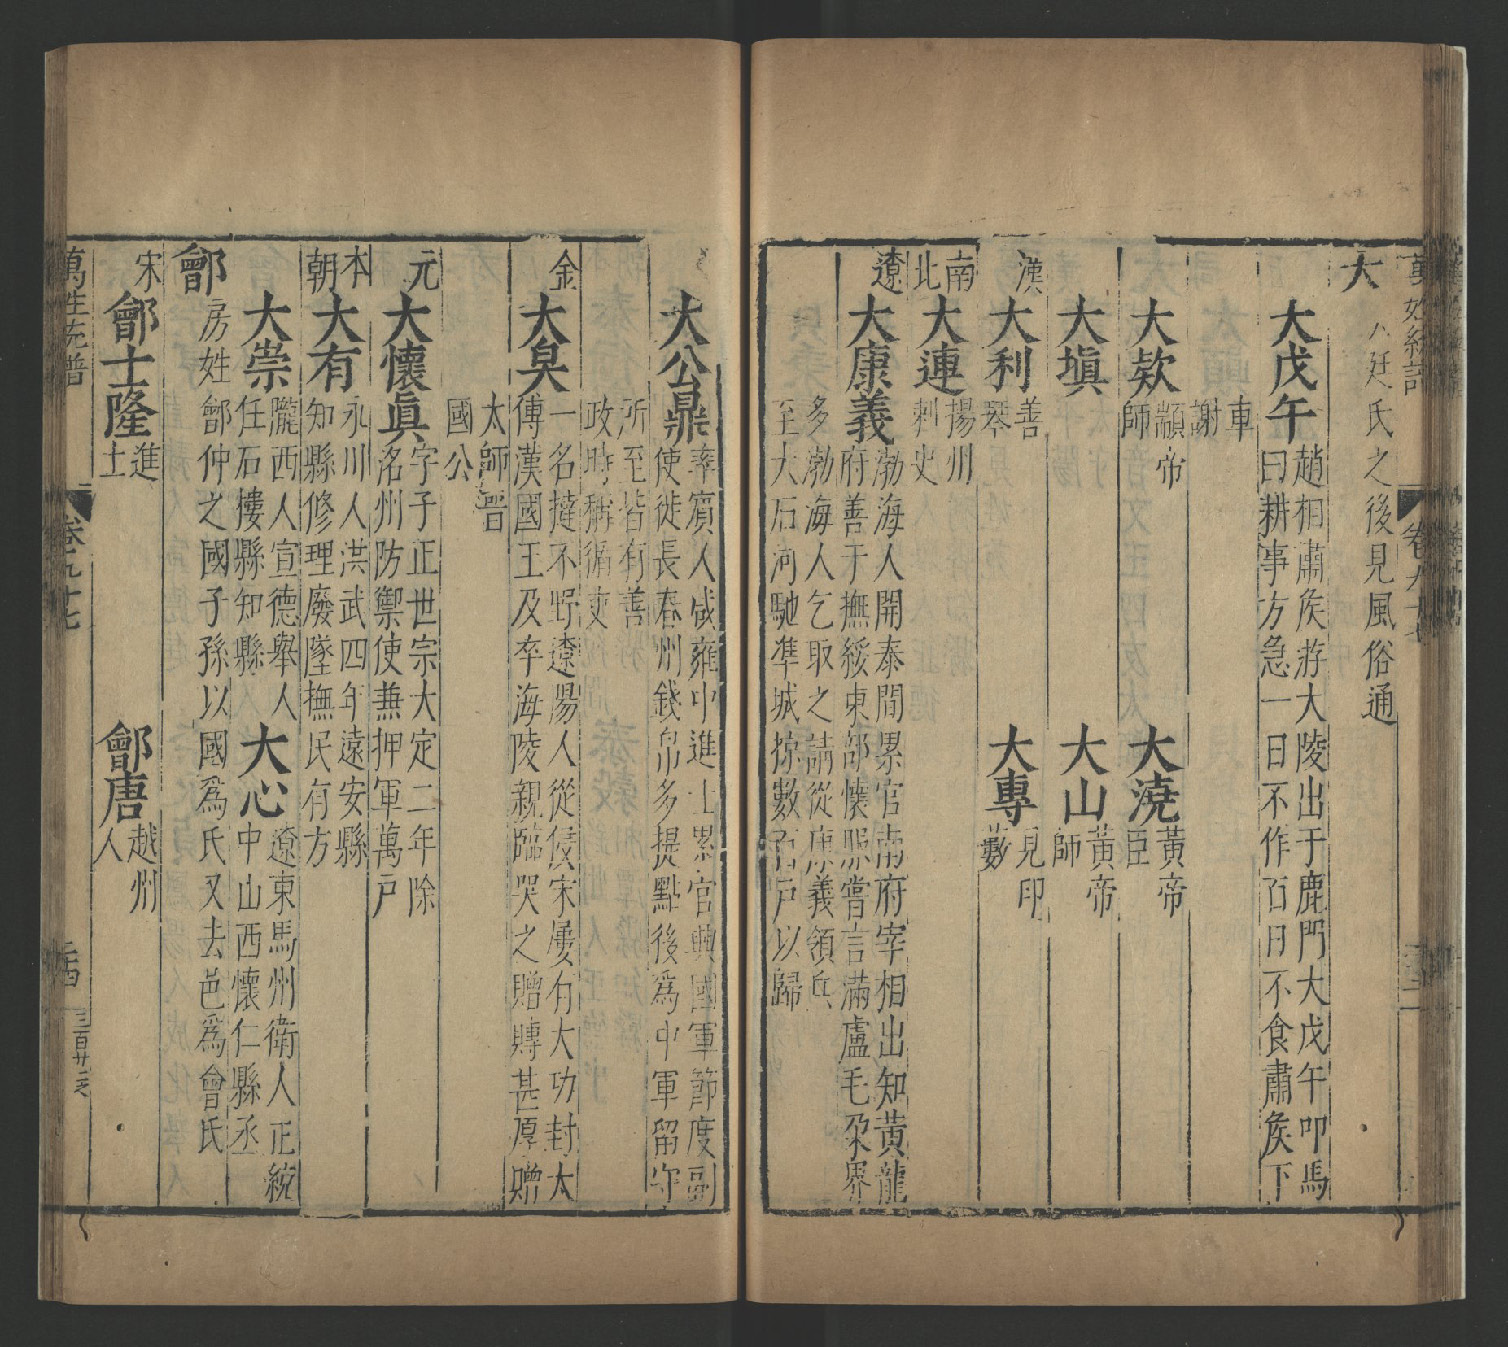 大
大廷氏之後見風俗通
大戊午
趙相肅侯游大陵出于鹿門大戊午叩馬
曰耕事方急一日不作百日不食肅侯下
車
謝
大欵
顓帝
師
大澆
黃帝
臣
大塡
大山
黃帝
師
漢
大利
善
琴
大專
見印
藪
南
北
大連
揚州
刺史
遼
大康義
渤海人開泰間累官南府宰相出知黃龍
府善于撫綏東部懷服嘗言滿盧毛朶界
多渤海人乞取之請從康義領兵
至大石河馳準城掠數百戶以歸
大公鼎
率賓人咸雍中進士累官興國軍節度副
使徙長春州錢帛多提點後爲中軍留守
所至皆有善
政時稱循吏
金
大㚖
一名撻不野遼陽人從侵宋屢有大功封太
傅漢國王及卒海陵親臨哭之贈賻甚厚贈
太師晉
國公
元
大懷眞
字子正世宗大定二年除
洺州防禦使兼押軍萬戶
本
朝
大有
永川人洪武四年遠安縣
知縣修理廢墜撫民有方
大崇
隴西人宣德舉人
任石樓縣知縣
大心
遼東馬州衛人正統
中山西懷仁縣丞
鄫
房姓鄫仲之國子孫以國爲氏又去邑爲曾氏
宋
鄫士隆
進
士
鄫唐
越州
人
萬姓統譜
卷九十七
三百廿